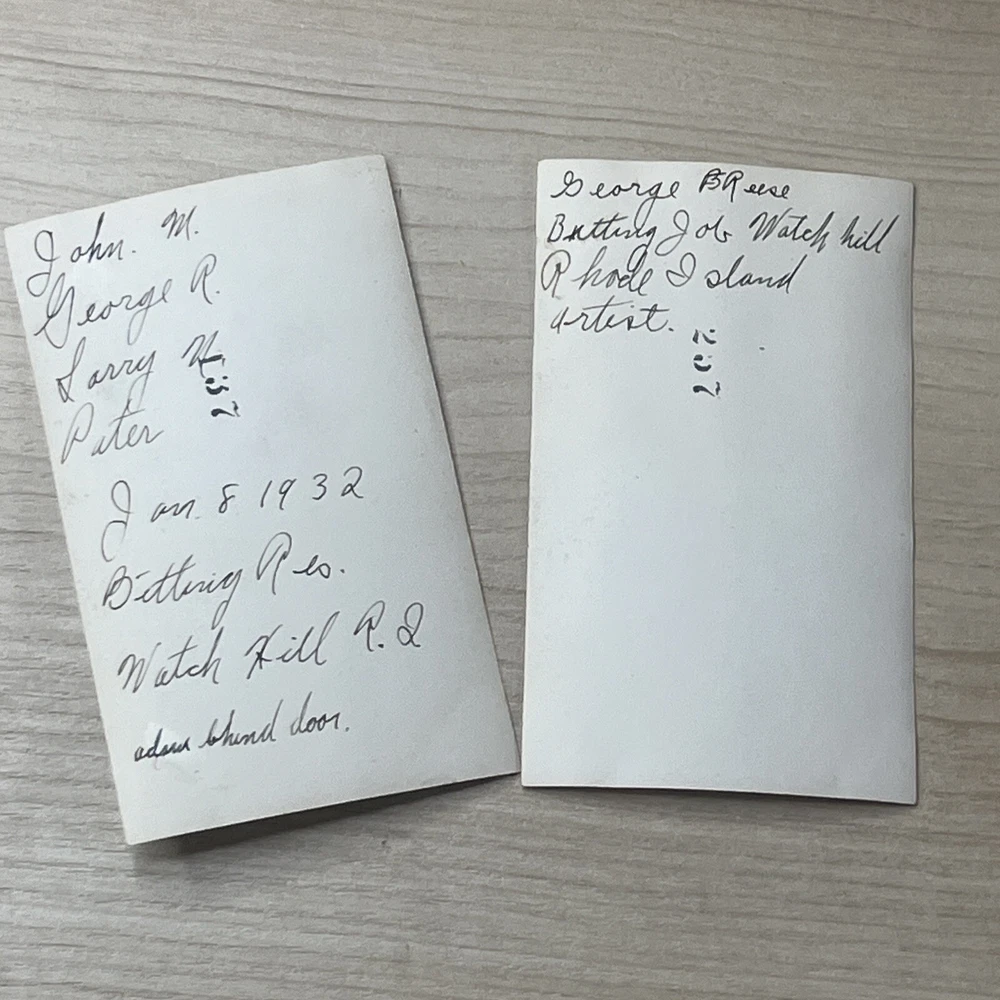 John. M.
George R.
Larry H
Pater
Jan. 8 1932
Bitting Res.
Watch Hill R.I
adam bhind door.
George B Reese
Bitting Job Watch hill
Rhode Island
artist.